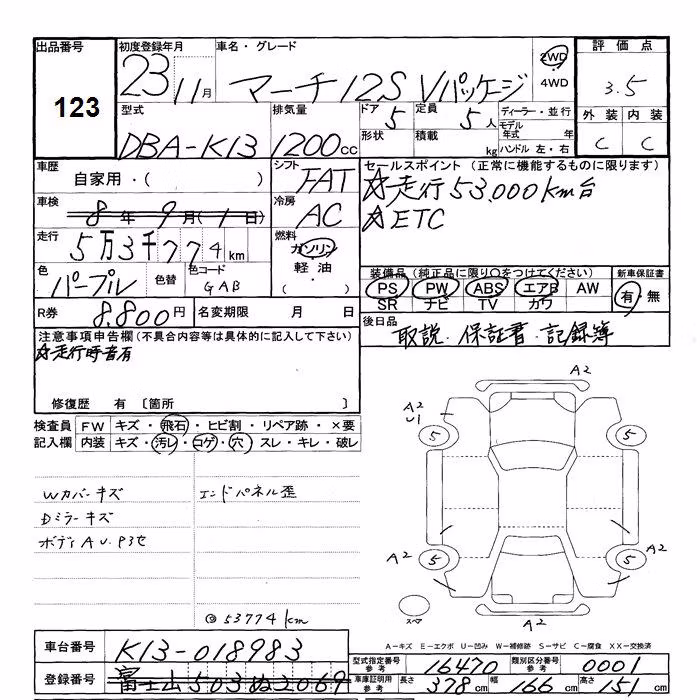 出品番号
123
初度登録年月
23 11月
車名・グレード
マーチ 12S Vパッケージ
2WD
4WD
評価点
3.5
外装 内装
C C
型式
DBA-K13
排気量
1200cc
ドア 5
形状
定員 5人
積載 kg
ディーラー・並行
モデル年式 年
ハンドル 左・右
車歴
自家用・( )
シフト
FAT
セールスポイント (正常に機能するものに限ります)
☆走行53,000km台
☆ETC
車検
8年 9月(1日)
冷房
AC
走行
5万3千774km
燃料
ガソリン
軽油
・( )
色
パープル
色替
色コード
GAB
装備品 (純正品に限り○をつけてください)
PS PW ABS エアB AW
SR ナビ TV カワ
新車保証書
有・無
R券
8,800円
名変期限 月 日
後日品
取説・保証書・記録簿
注意事項申告欄(不具合内容等は具体的に記入して下さい)
☆走行時音有
修復歴 有 〔箇所 〕
検査員記入欄
FW キズ・飛石・ヒビ割・リペア跡・×要
内装 キズ・汚レ・コゲ・穴・スレ・キレ・破レ
Wカバーキズ
Dミラーキズ
ボディAU.P3セ
エンドパネル歪
◎53774km
A2
A2
U1
5
5
A2
5
5
A2
A2
スペア
A-キズ E-エクボ U-凹み W-補修跡 S-サビ C-腐食 XX-交換済
車台番号
K13-018983
登録番号
富士山503ぬ2069
型式指定番号 参考
16470
類別区分番号 参考
0001
車庫証明用 参考
長さ 378cm
幅 166cm
高さ 151cm